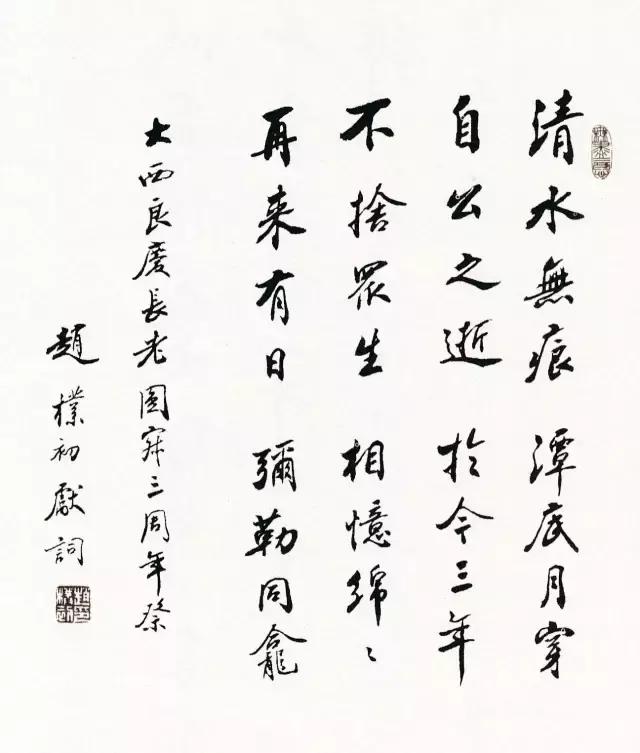 清水無痕 潭底月穿
自公之逝 於今三年
不捨眾生 相憶綿〻
再來有日 彌勒同龕
大西良慶長老圓寂三周年祭
趙樸初獻詞
趙樸初